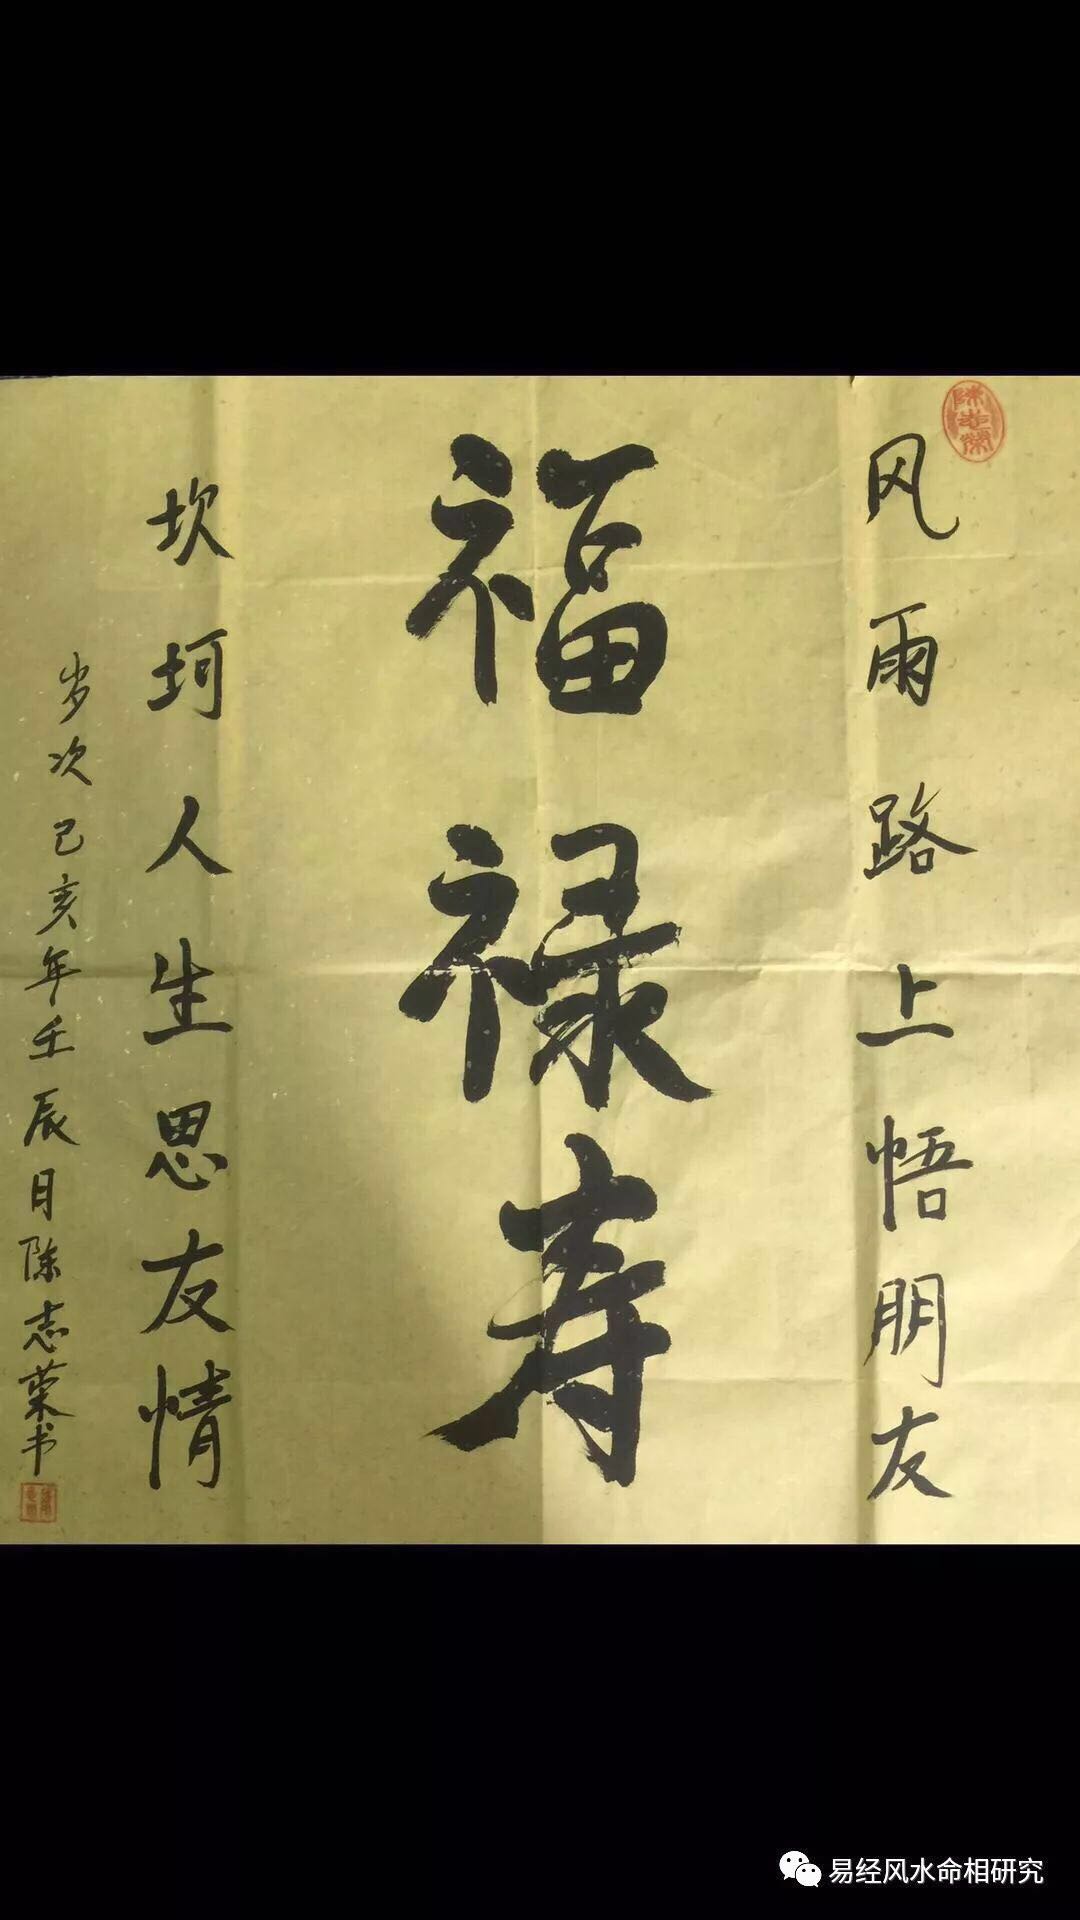 陈志荣
风雨路上悟朋友
福禄寿
坎坷人生思友情
岁次己亥年壬辰月陈志荣书
易经风水命相研究